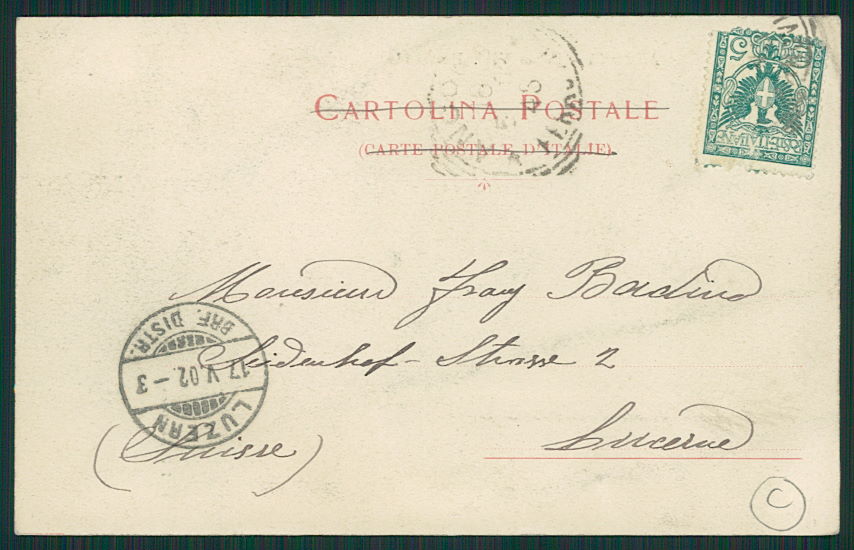 CARTOLINA POSTALE
(CARTE POSTALE D'ITALIE).
5
POSTE ITALIANE
Monsieur Fray Badino
Seidenhof-Strasse 2
Lucerne
(Suisse)
LUZERN
17.V.02-3
BRF. DISTR.
C